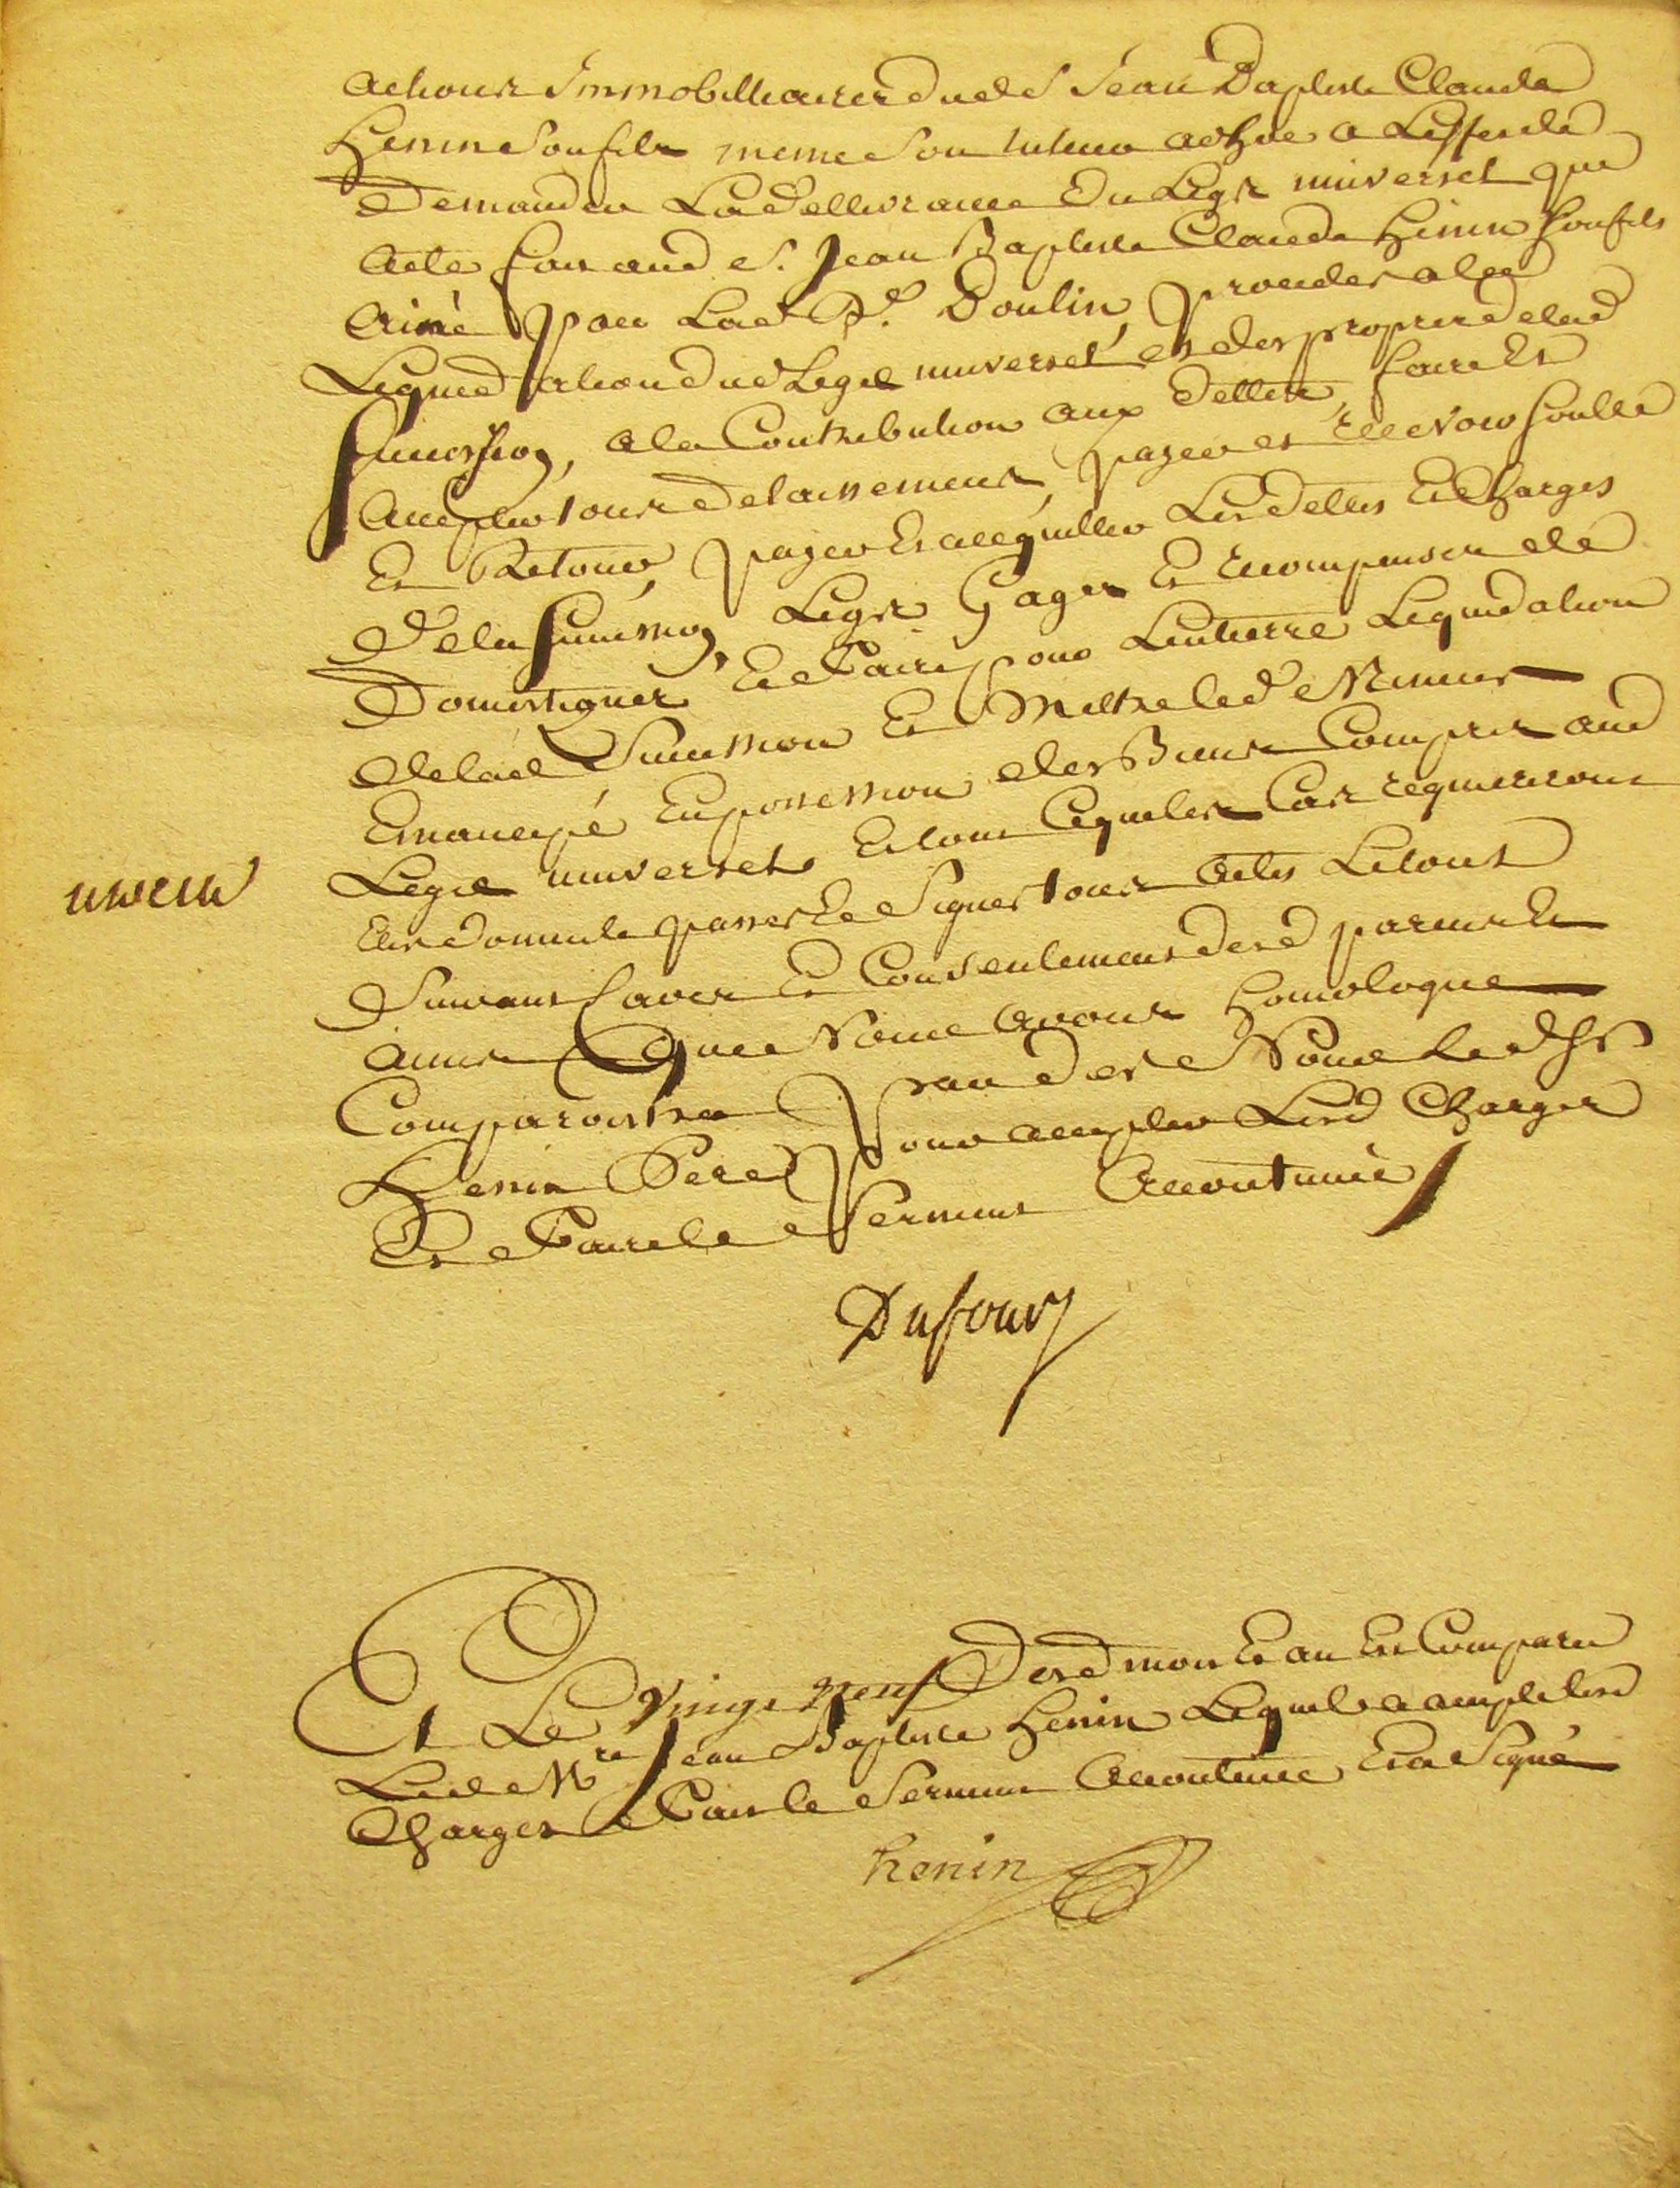 actions immobilliaires dud S Jean Baptiste Claude
Henin son fils meme son tuteur ad hoc a Leffet de
Demander La dellivrance du Legs universel qui
a ete fait aud S. Jean Baptiste Claude Henin son fils
ainé par Lad De. Doulin, proceder a la
Liquidation dud Legs universel et des propres de lad
Succession, a la Contribution aux dettes, faire Et
accepter tous delaissemens, payer et recevoir soulte
Et Retour, payer Et acquitter Les dettes Et Charges
de la Succession, Legs Gages Et recompenses de
Domestiques Et faire pour Lentierre Liquidation
de lad Succession Et Mettre led Mineur
Emancipé En possession des Biens Compris aud
Legs universel Et tout Ce que les Cas requereront
Elire domicile passer Et Signer tous actes Le tout
Suivant Lavis Et Consentement desd parens Et
amis Que Nous avons homologué
Comparoistra pardevt Nous Led Sr
Henin Pere pour accepter Lesd Charges
Et faire le Serment accoutumé
Dufour
Et Le Vingt neuf Desd mois Et an Est Comparu
Led Mre Jean Baptiste Henin Lequel a accepté lesd
Charges fait le Serment accoutumé Et a Signé
henin